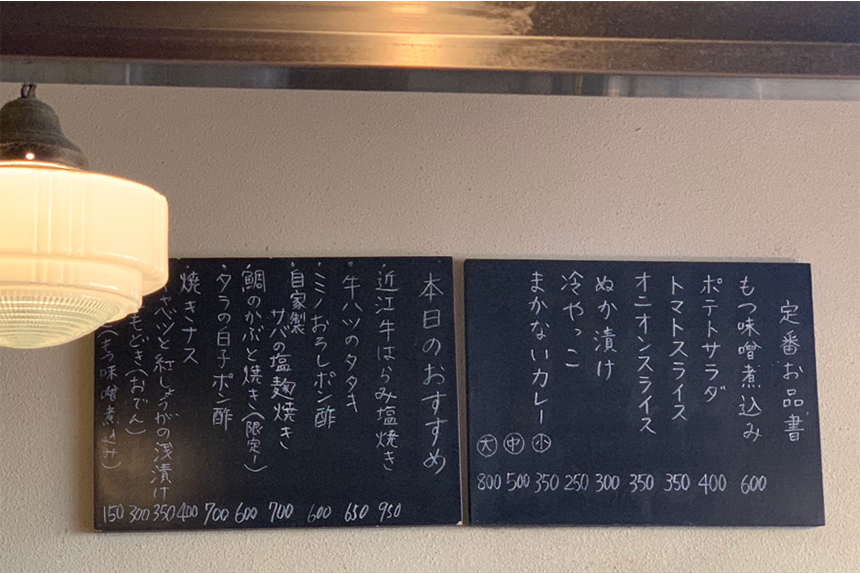 定番お品書
もつ味噌煮込み 600
ポテトサラダ 400
トマトスライス 350
オニオンスライス 350
ぬか漬け 300
冷やっこ 250
まかないカレー 小 350
中 500
大 800
本日のおすすめ
・近江牛はらみ塩焼き 950
・牛ハツのタタキ 650
・ミノおろしポン酢 600
・自家製
サバの塩麹焼き 700
・鯛のかぶと焼き(限定1) 600
・タラの白子ポン酢 700
焼きナス 400
ャベツと紅しょうがの浅漬け 350
もどき(おでん) 300
(もつ味噌煮込み) 150